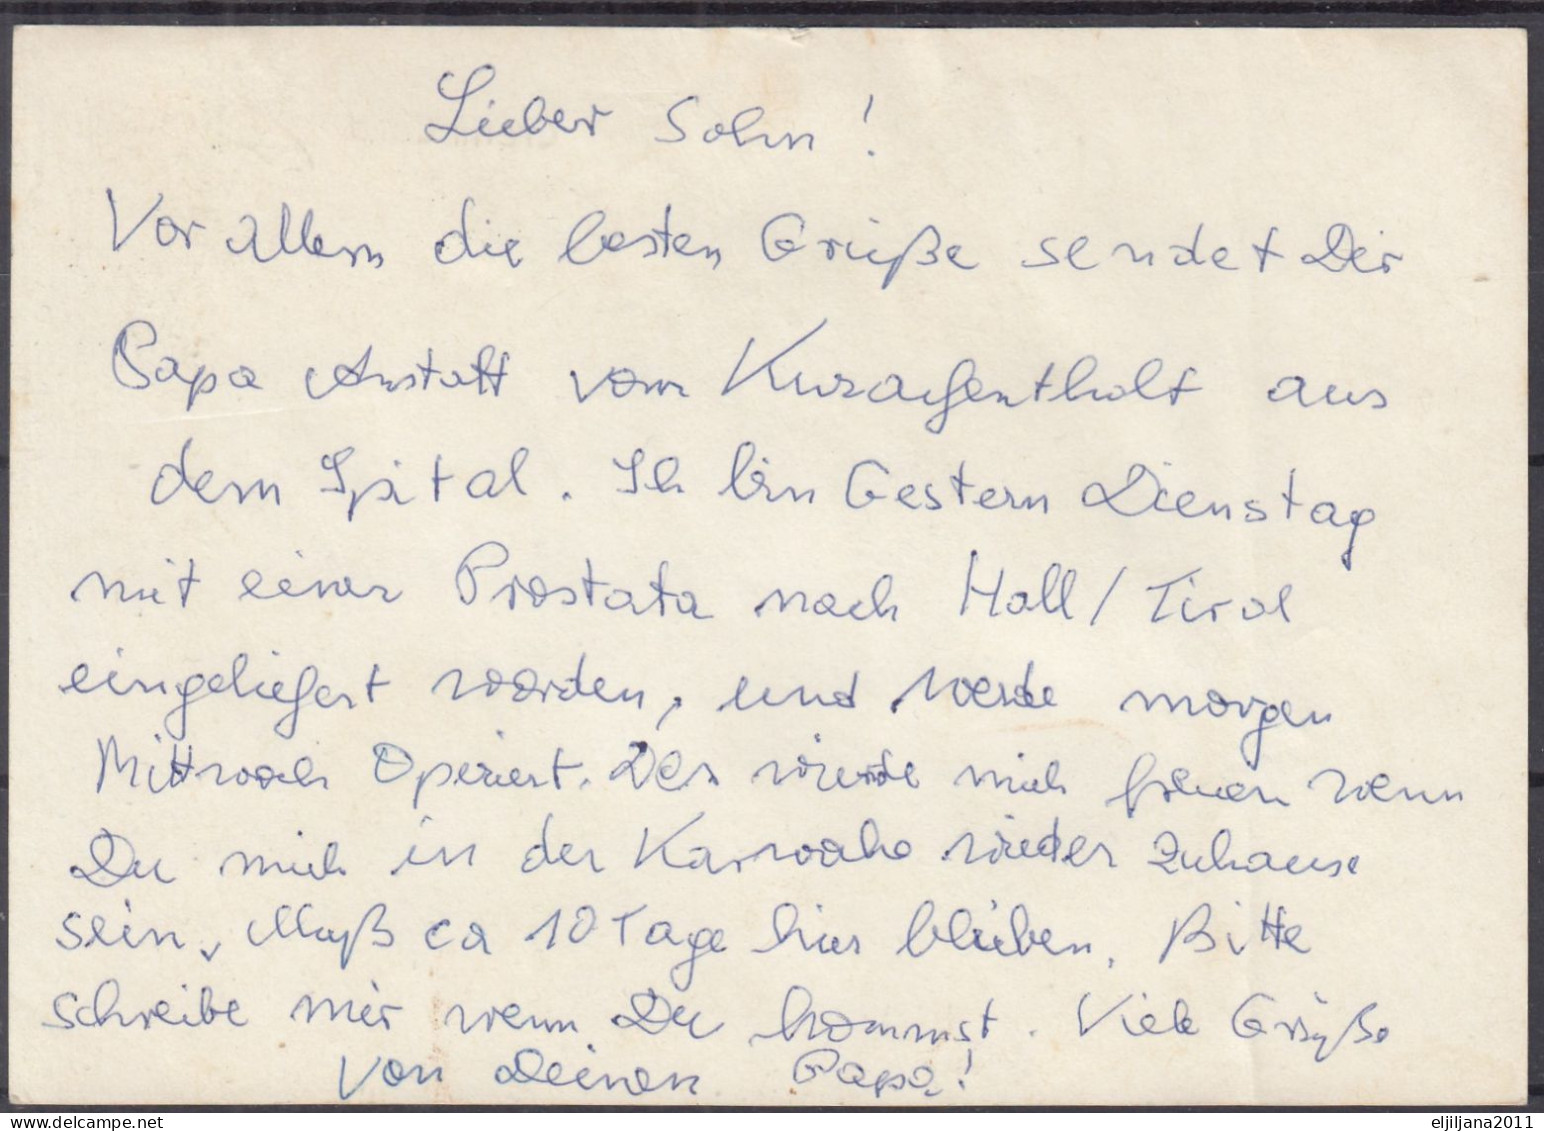 Lieber Sohn!
Vor allem die besten Grüße sendet Dir
Papa Anstatt vom Kuraufenthalt aus
dem Spital. Ich bin Gestern Dienstag
mit einer Prostata nach Hall/Tirol
eingeliefert worden, und werde morgen
Mittwoch Operiert. Der würde mich freuen wenn
Du mich in der Karwoche wieder Zuhause
sein, Muß ca 10 Tage hier bleiben. Bitte
schreibe mir wenn Du kommst. Viele Grüße
von Deinen Papa!
eljiljana2011